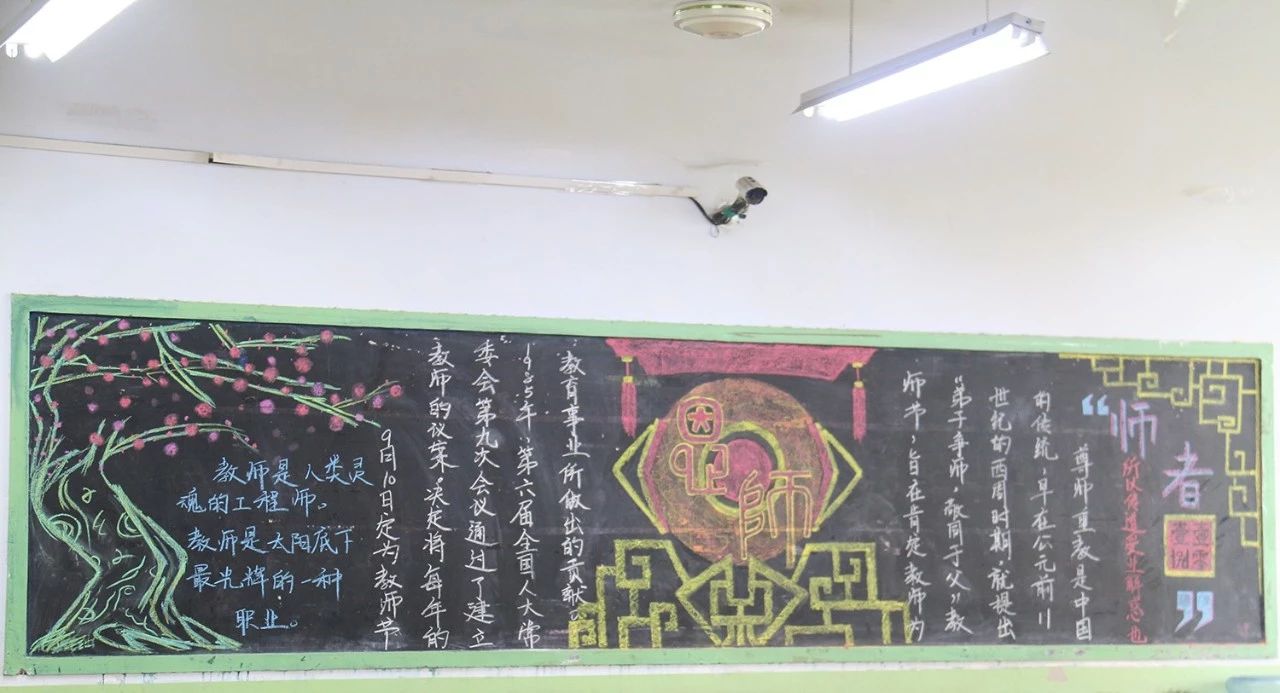 “师者
所以傳道受业解惑也
壹零
壹捌
”
尊师重教是中国
的传统,早在公元前11
世纪的西周时期,就提出
“弟子事师,敬同于父”教
师节,旨在肯定教师为
恩師
教育事业所做出的贡献。
1985年,第六届全国人大常
委会第九次会议通过了建立
教师的议案,决定将每年的
9月10日定为教师节
教师是人类灵
魂的工程师。
教师是太阳底下
最光辉的一种
职业。